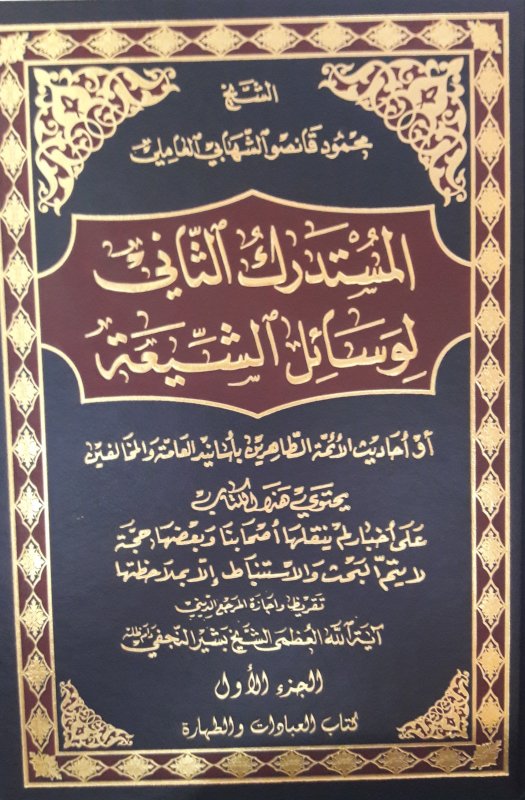 الشيخ
محمود قانصو الشهابي العاملي
المُسْتَدرَكُ الثَّاني
لِوَسَائِل الشِّيعَة
أو أحاديث الأئمة الطاهرين بأسانيد العامة والمخالفين
يحتوي هذا الكتاب
على أخبار لم ينقلها أصحابنا وبعضها حجة
لا يتم البحث والاستنباط إلا بملاحظتها
تقريظ وإجازة المرجع الديني
آية الله العظمى الشيخ بشير النجفي دام ظله
الجزء الأول
كتاب العبادات والطهارة